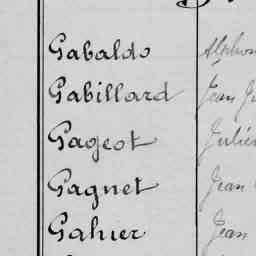 Gabaldo
Gabillard Jean
Gageot Julien
Gagnet Jean
Gahier Jean